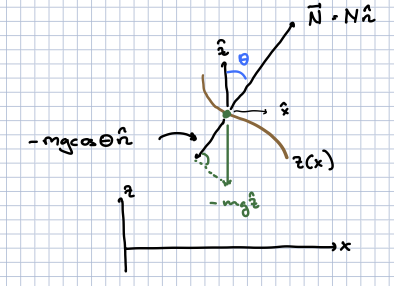 N⃗ = Nn̂
ẑ
θ
x̂
-mgcosθn̂
z(x)
-mgẑ
z
x